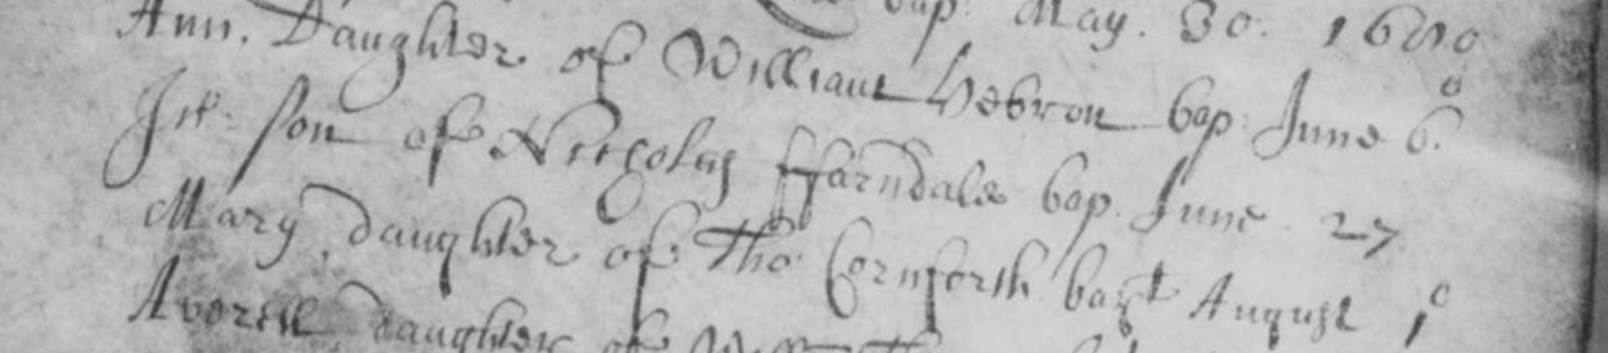 bap: May. 30. 1680
Ann. Daughter of William Hebron bap: June 6.
Jn° son of Nicholas ffarndale bap. June 27
Mary, daughter of Tho: Cornforth bapt August 1°
Averill daughter of